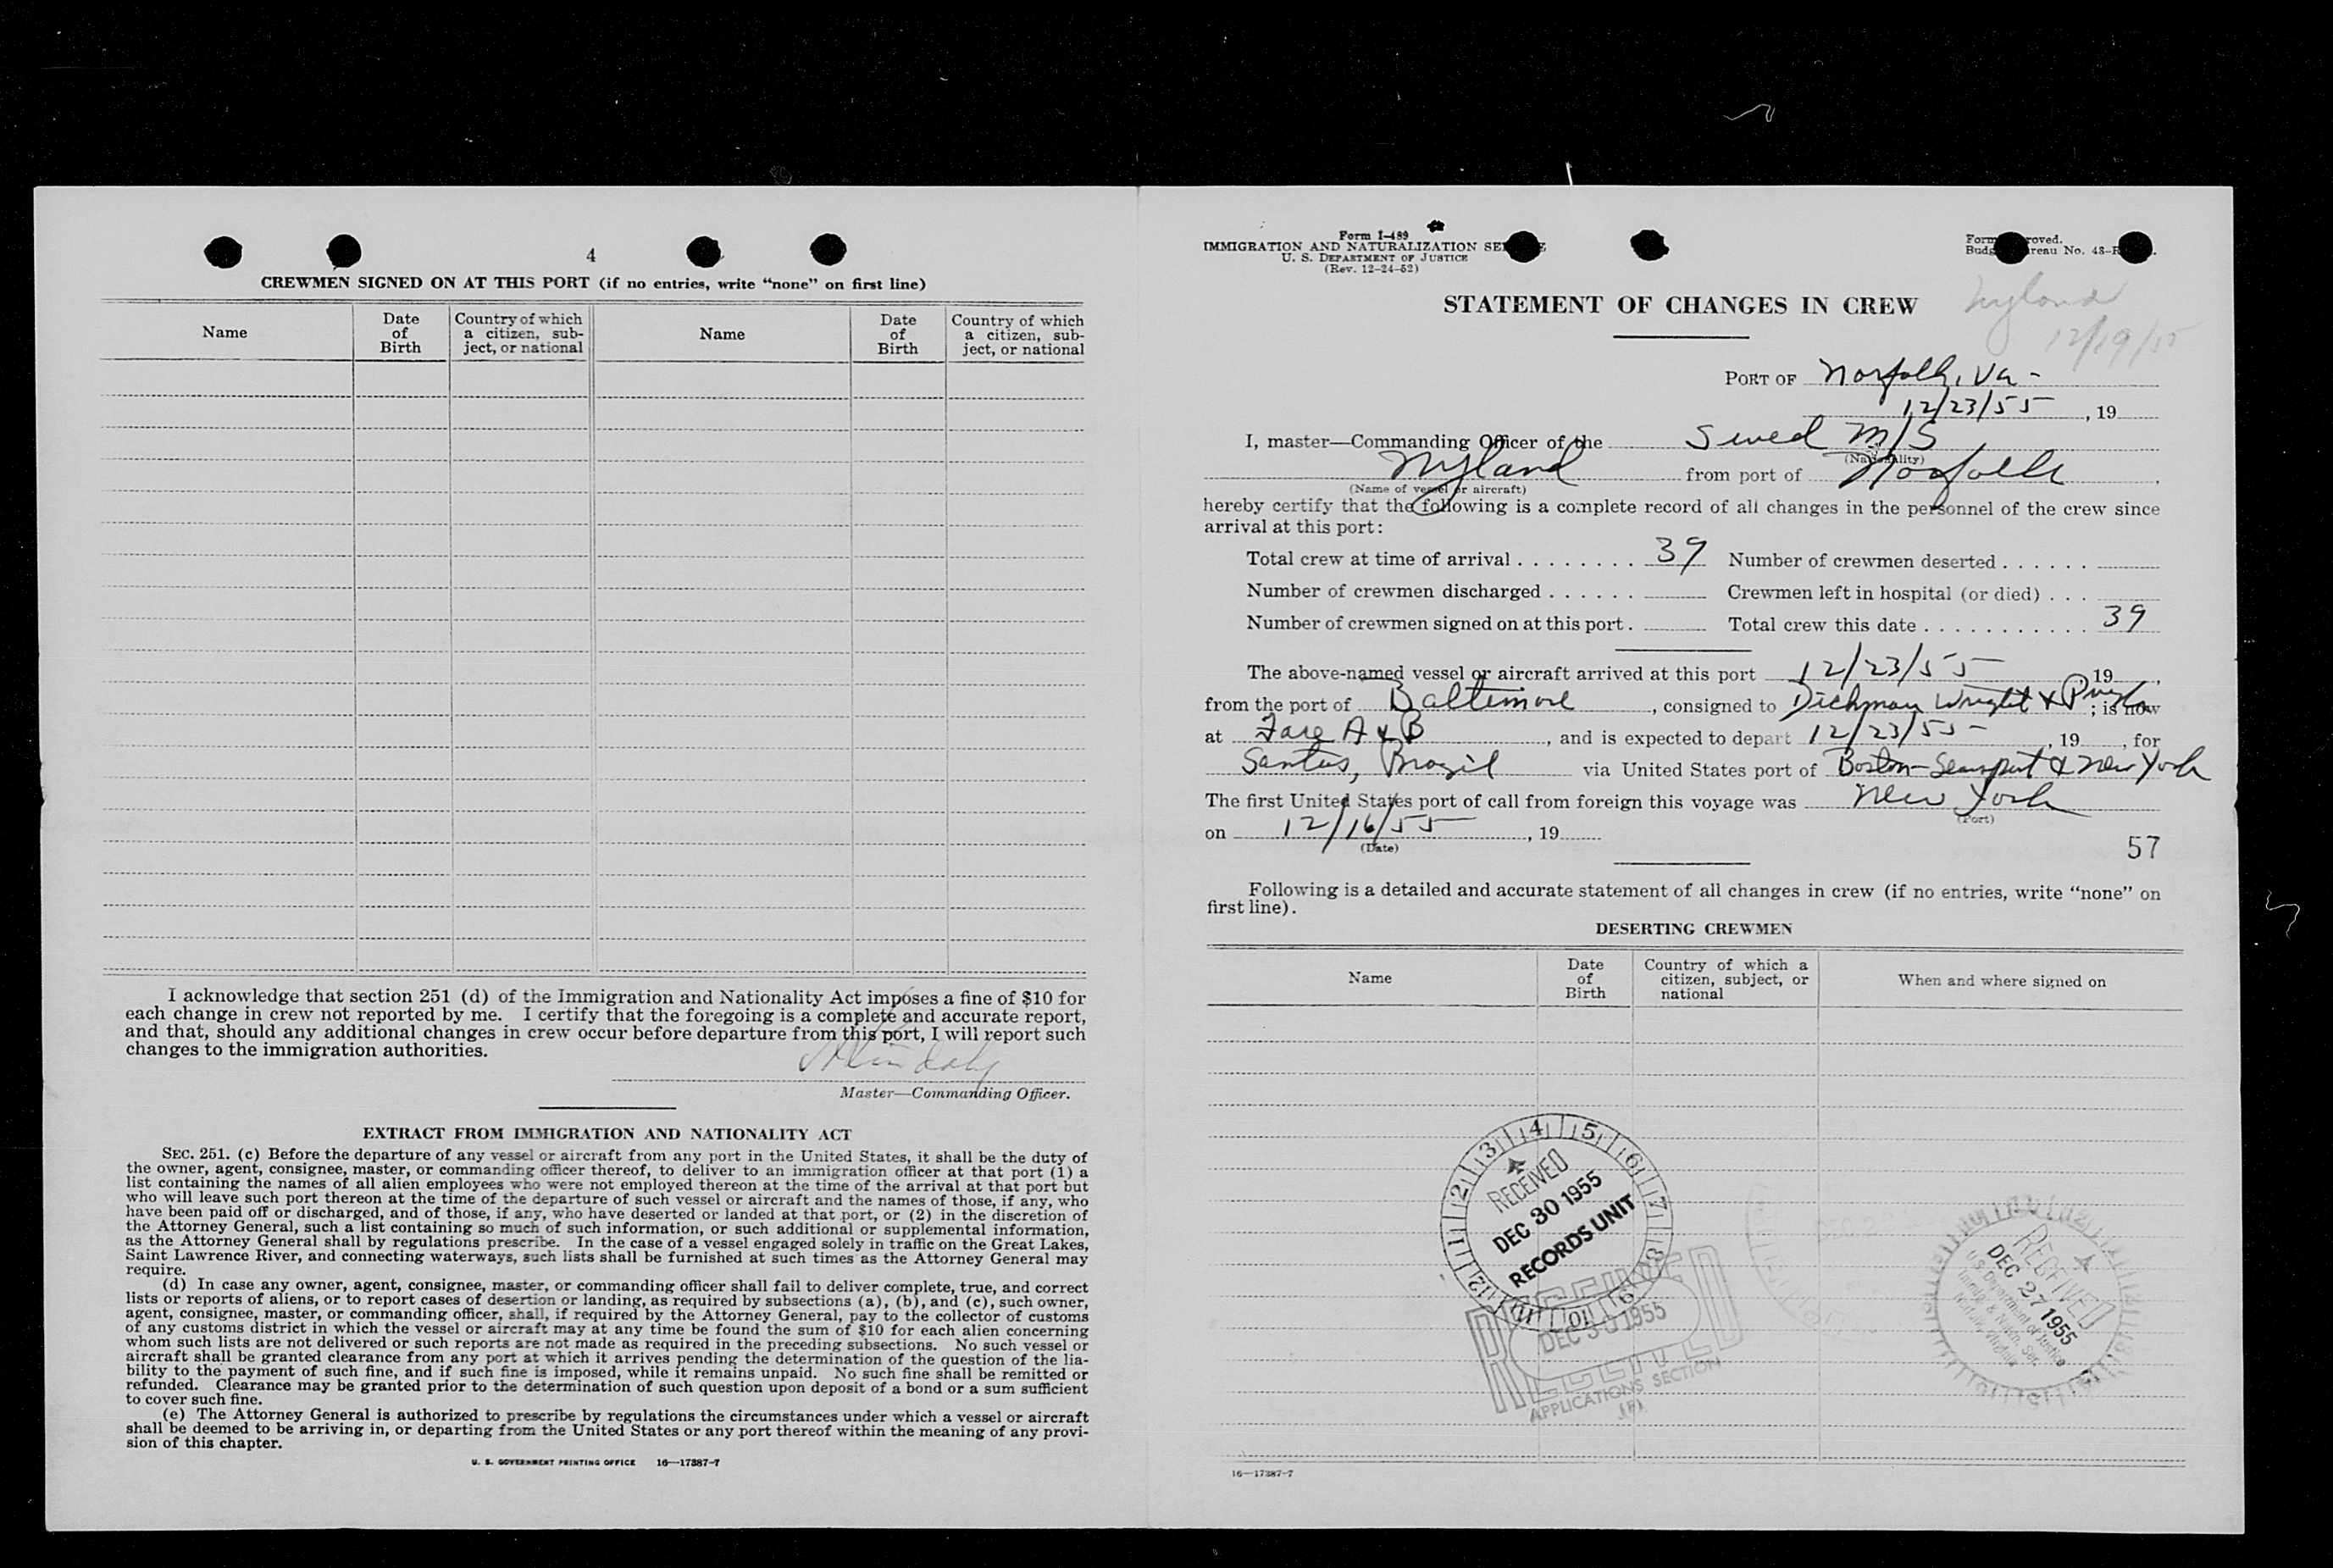 4
CREWMEN SIGNED ON AT THIS PORT (if no entries, write “none” on first line)
Name
Date of Birth
Country of which a citizen, subject, or national
Name
Date of Birth
Country of which a citizen, subject, or national
I acknowledge that section 251 (d) of the Immigration and Nationality Act imposes a fine of $10 for
each change in crew not reported by me. I certify that the foregoing is a complete and accurate report,
and that, should any additional changes in crew occur before departure from this port, I will report such
changes to the immigration authorities.
Master—Commanding Officer.
EXTRACT FROM IMMIGRATION AND NATIONALITY ACT
SEC. 251. (c) Before the departure of any vessel or aircraft from any port in the United States, it shall be the duty of
the owner, agent, consignee, master, or commanding officer thereof, to deliver to an immigration officer at that port (1) a
list containing the names of all alien employees who were not employed thereon at the time of the arrival at that port but
who will leave such port thereon at the time of the departure of such vessel or aircraft and the names of those, if any, who
have been paid off or discharged, and of those, if any, who have deserted or landed at that port, or (2) in the discretion of
the Attorney General, such a list containing so much of such information, or such additional or supplemental information,
as the Attorney General shall by regulations prescribe. In the case of a vessel engaged solely in traffic on the Great Lakes,
Saint Lawrence River, and connecting waterways, such lists shall be furnished at such times as the Attorney General may
require.
(d) In case any owner, agent, consignee, master, or commanding officer shall fail to deliver complete, true, and correct
lists or reports of aliens, or to report cases of desertion or landing, as required by subsections (a), (b), and (c), such owner,
agent, consignee, master, or commanding officer, shall, if required by the Attorney General, pay to the collector of customs
of any customs district in which the vessel or aircraft may at any time be found the sum of $10 for each alien concerning
whom such lists are not delivered or such reports are not made as required in the preceding subsections. No such vessel or
aircraft shall be granted clearance from any port at which it arrives pending the determination of the question of the lia-
bility to the payment of such fine, and if such fine is imposed, while it remains unpaid. No such fine shall be remitted or
refunded. Clearance may be granted prior to the determination of such question upon deposit of a bond or a sum sufficient
to cover such fine.
(e) The Attorney General is authorized to prescribe by regulations the circumstances under which a vessel or aircraft
shall be deemed to be arriving in, or departing from the United States or any port thereof within the meaning of any provi-
sion of this chapter.
U. S. GOVERNMENT PRINTING OFFICE 16—17387-7
Form I-489
IMMIGRATION AND NATURALIZATION
U. S. DEPARTMENT OF JUSTICE
(Rev. 12-24-52)
No. 43-
STATEMENT OF CHANGES IN CREW
Nyland
12/19/55
PORT OF Norfolk, Va-
12/23/55, 19
I, master—Commanding Officer of the Swed M/S
(Nationality)
Nyland from port of Norfolk,
(Name of vessel or aircraft)
hereby certify that the following is a complete record of all changes in the personnel of the crew since
arrival at this port:
Total crew at time of arrival 39 Number of crewmen deserted
Number of crewmen discharged Crewmen left in hospital (or died)
Number of crewmen signed on at this port. Total crew this date 39
The above-named vessel or aircraft arrived at this port 12/23/55, 19,
from the port of Baltimore, consigned to Dichman Wright & Pugh; is now
at A & B, and is expected to depart 12/23/55, 19, for
Santos, Brazil via United States port of Boston-Searsport & New York
The first United States port of call from foreign this voyage was New York
(Port)
on 12/16/55, 19
(Date)
57
Following is a detailed and accurate statement of all changes in crew (if no entries, write “none” on
first line).
DESERTING CREWMEN
Name
Date of Birth
Country of which a citizen, subject, or national
When and where signed on
RECEIVED
DEC 30 1955
RECORDS UNIT
RECEIVED
DEC 30 1955
APPLICATIONS SECTION
RECEIVED
DEC 27 1955
U. S. Department of Justice
16—17387-7